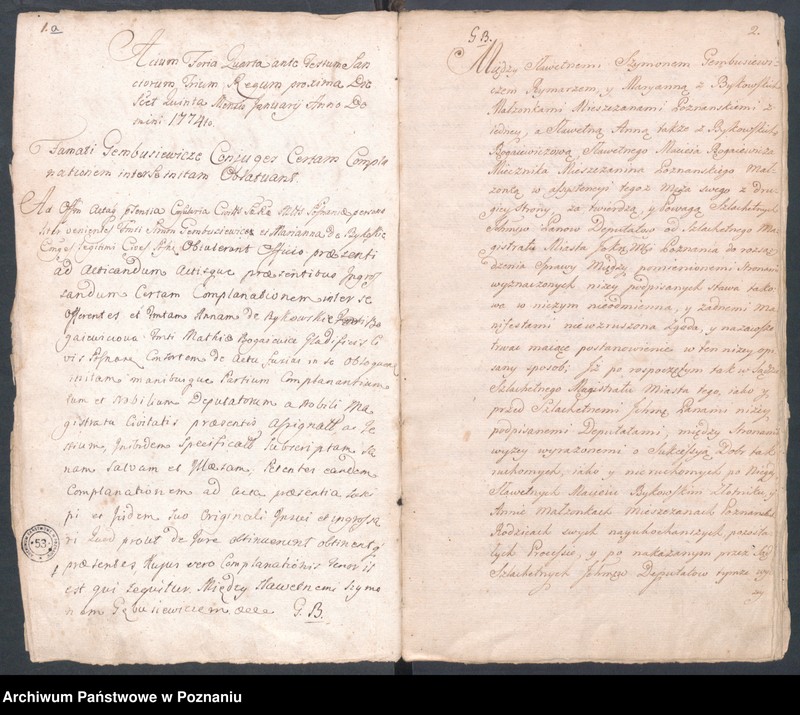 1. a
Actum Feria Quarta ante Festum San
ctorum Trium Regum proxima Die
scilt Quinta Mensis Januarij Anno Do
mini 1774to.
Famati Gembusiewicze Conjuges Certam Compla
nationem inter se initam Oblatuant.
Ad Offm Actaq psentia
veniens Fmti Simon Gembusiewicz et Marianna de Bykowskie
Conjges legitimi Cives Obtulerunt Officio praesenti
ad Acticandum Actisque praesentibus Ingros
sandum Certam Complanationem inter se
Offerentes et Fmtam Annam de Bykowskie
gaiewiczowa Fmti Mathiae Rogaiewicz Gladificis Ci
vis Posnan Consortem de Actu
initam manibusque Partium Complanantium
tum et Nobilium Deputatorum a Nobili Ma
gistratu Civitatis praesentis assignatt as
Ibidem Specificatt Subscriptam Sa
nam Salvam et Illaesam, Petentes eandem
Complanationem ad Acta praesentia Susci
pi et Iisdem suo Originali Inseri et ingrossa
ri Quod prout de Jure obtinuerunt obtinent q
praesentes, Hujus vero Complanationis Tenor is
est qui sequitur. Między Sławetnemi Szymo
nem Gębusiewiczem &&&
G. B.
53
G. B.
2.
Między Sławetnemi Szymonem Gembusiewi
czem Rymarzem, y Maryanną z Bykowskich
Małzonkami Mieszczanami Poznanskiemi z
iedney, a Sławetną Anną także z Bykowskich
Rogaiewiczową, Sławetnego Macieia Rogaiewicza
Miecznika Mieszczanina Poznanskiego Mał
zonką w assystencyi tegoz Męża swego z dru
giey Strony, za twierdzą, y Powagą Szlachetnych
Panow Deputatow od Szlachetnego Ma
gistratu Miasta Poznania do rozsą
dzenia Sprawy Między pomienionemi Stronami
wyznaczonych nizey podpisanych stawa tako
wa w niczym nieodmienna, y zadnemi Ma
nifestami niewzruszona Zgoda, y nazawsze
trwac maiące postanowienie w ten nizey opi
sany sposob; Iż po rozpoczętym tak w Sądzie
Szlachetnego Magistratu Miasta tego, iako y
przed Szlachetnemi Panami nizey
podpisanemi Deputatami, między Stronami
wyzey wyrazonemi o Sukcessyą Dobr tak
ruchomych, iako y nieruchomych po Niegdy
Sławetnych Macieiu Bykowskim Złotniku, y
Annie Małzonkach Mieszczanach Poznanskich
Rodzicach swych nayukochanszych, pozosta
łych Processie, y po nakazanym przez
Szlachetnych Deputatow tymże